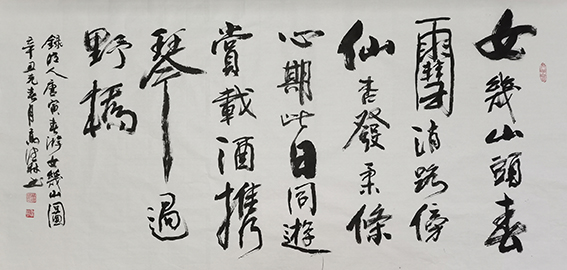 女幾山頭春
雪消路傍
仙杏發柔條
心期此日同遊
賞載酒攜
琴過
野橋
錄明人唐寅春游女幾山圖
辛丑元春月高林书